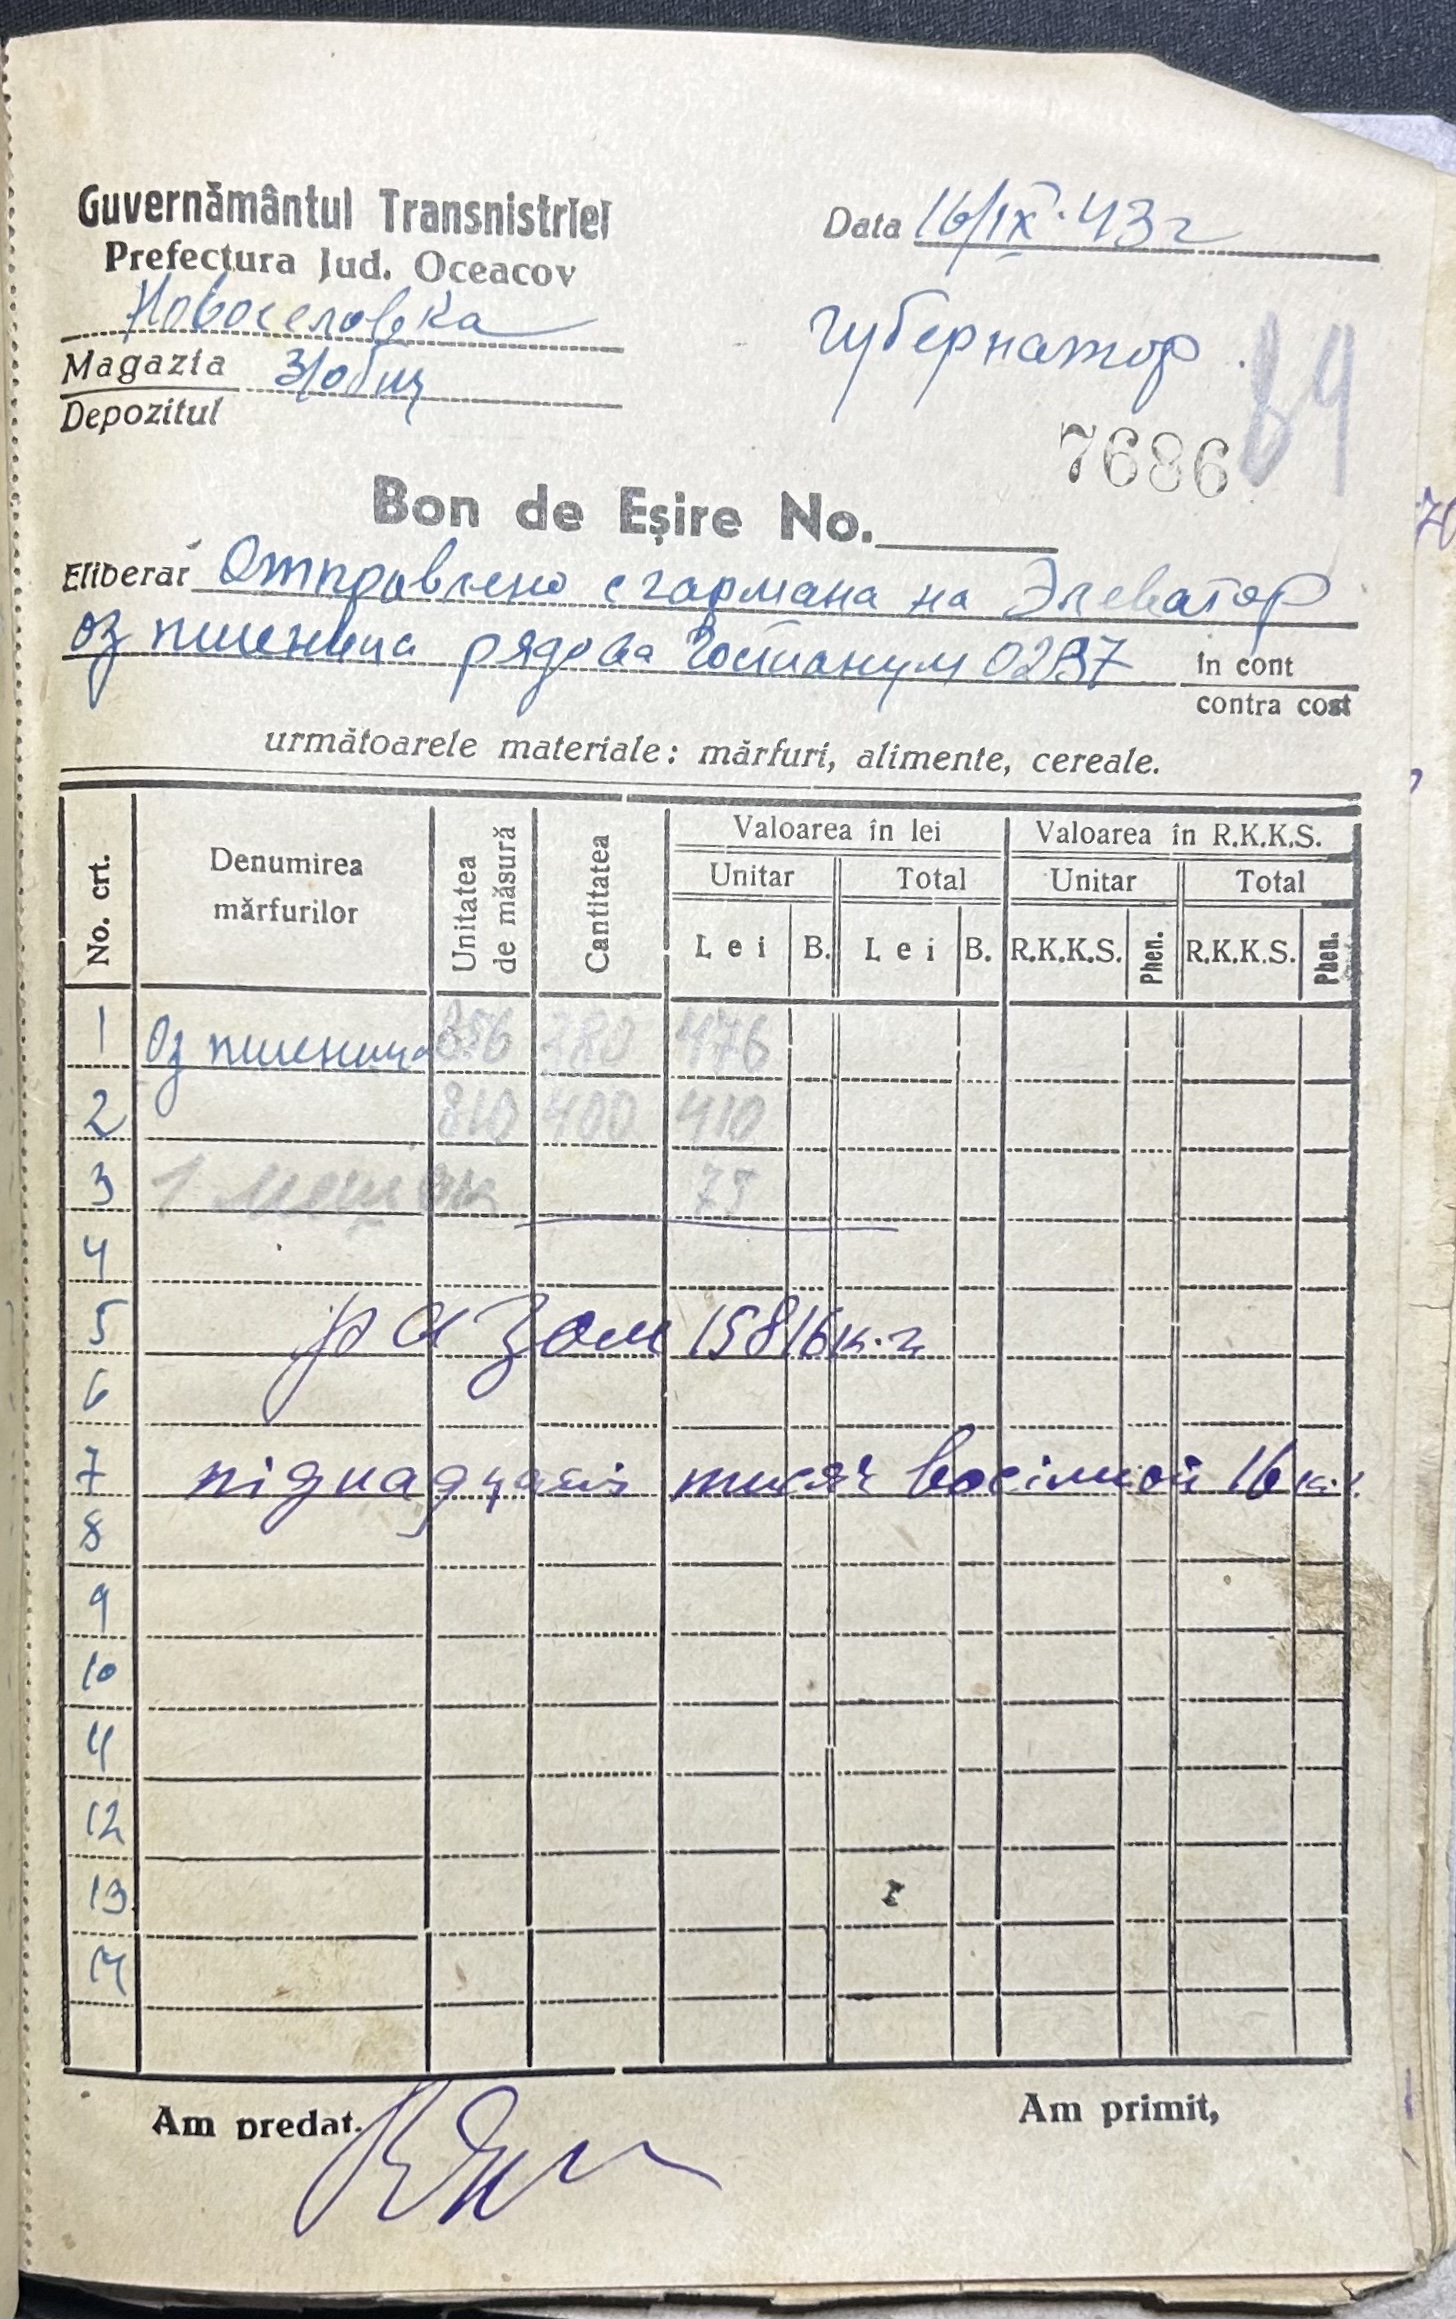 Guvernământul Transnistriei
Prefectura Jud. Oceacov
Новоселовка
Data 16/IX·43г
Magazia З/общ
Depozitul
Губернатор
89
7686
Bon de Eşire No.
Eliberat Отправлено с гармана на Элеватор
оз пшеница рядова Гостианум 0237 în cont
contra cost
următoarele materiale: mărfuri, alimente, cereale.
No. crt. Denumirea mărfurilor Unitatea de măsură Cantitatea Valoarea în lei Valoarea în R.K.K.S.
Unitar Total Unitar Total
Lei B. Lei B. R.K.K.S. Phen. R.K.K.S. Phen.
1 Оз пшеница 856 380 476
2 810 400 410
3 1 мешок 75
4
5 разом 15816 к.г
6
7 пiднадцять тисяч восiмсот 16 к.г
8
9
10
11
12
13
14
Am predat, Am primit,